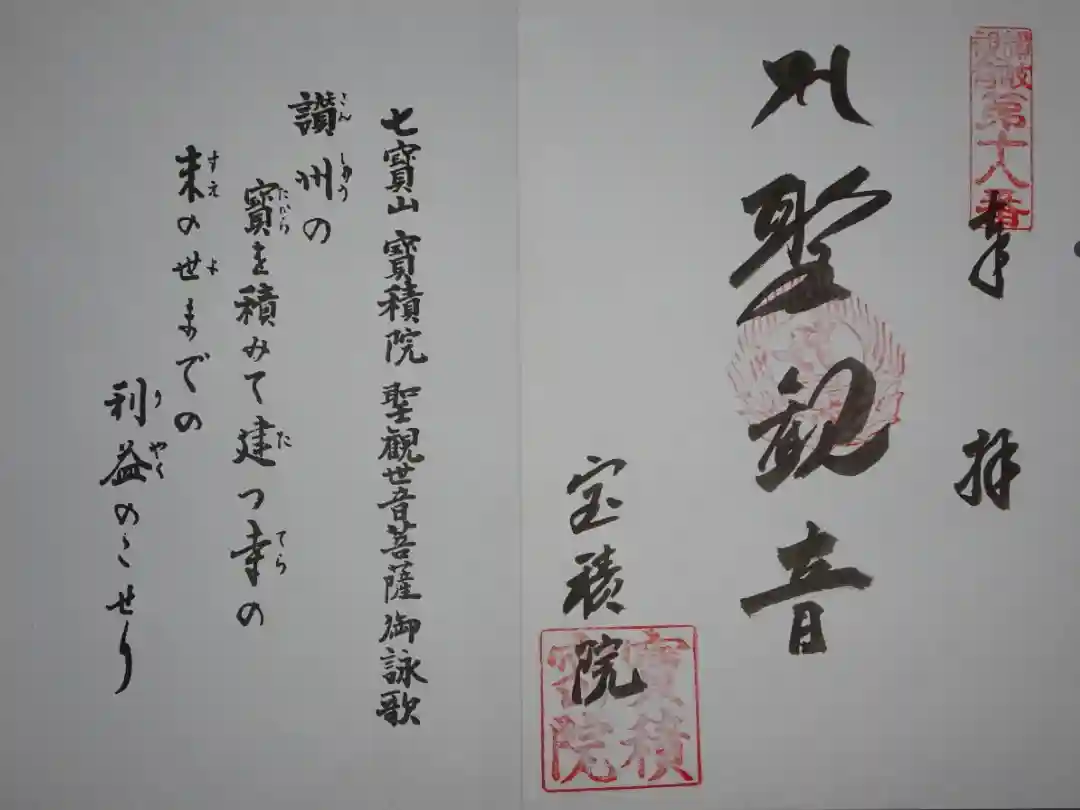 讃岐
観音
第十八番
奉拝
聖観音
宝積院
寶積
院
七寳山 寳積院 聖観世音菩薩御詠歌
讃州の
さんしゅう
寳を積みて建つ寺の
たから
た
てら
末の世までの
すえ
よ
利益のこせり
りやく